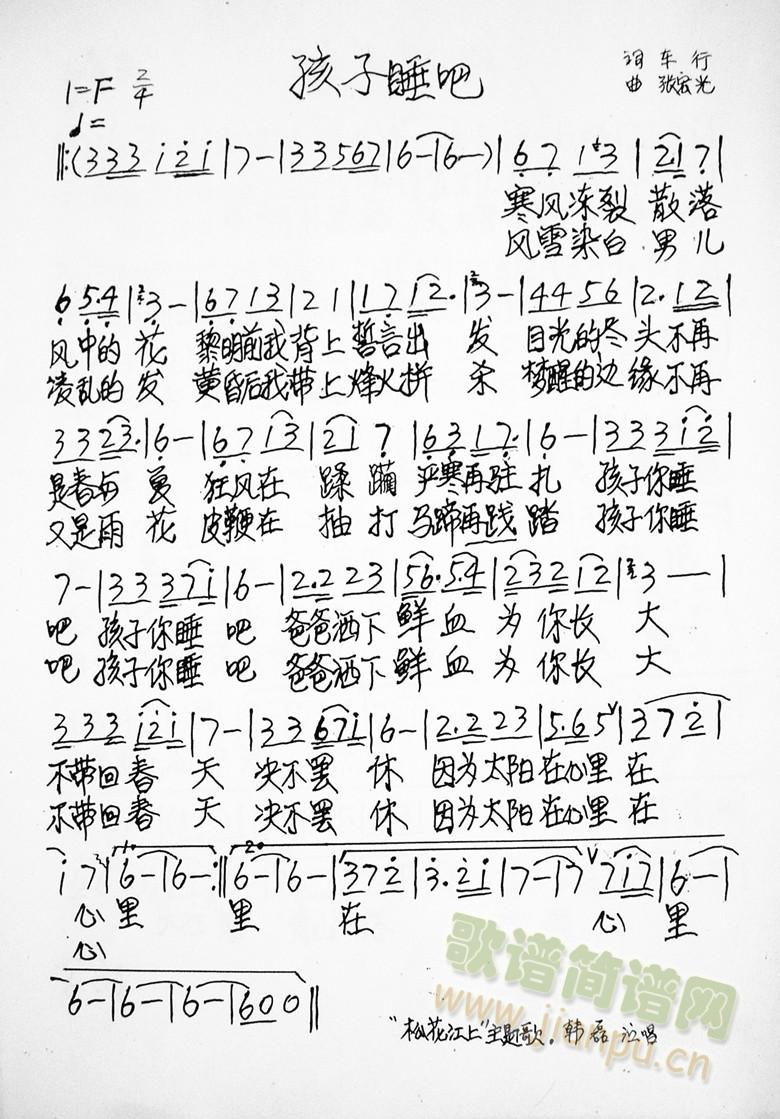 孩子睡吧
词 车行
曲 张宏光
1=F 2/4
♩=
‖:(333 i2i|7-|33567|6-|6-)|67 13|2.1 7|
寒风冻裂 散落
风雪染白 男儿
6 5.4|3-|67 13|2 1|17 12.|3-|44 56|2. 12|
风中的 花 黎明前我背上 誓言出 发 目光的尽头不再
凌乱的 发 黄昏后我带上烽火拼 杀 梦醒的边缘不再
33 23.|6-|67 i3|2i 7|63 17.|6-|33 3i2|
是春与 夏 狂风在 蹂躏 严寒再驻扎 孩子你睡
又是雨 花 皮鞭在 抽打 马蹄再践踏 孩子你睡
7-|33 37i|6-|2.2 23|56.5.4|232 12|3--|
吧 孩子你睡 吧 爸爸洒下 鲜血 为你长 大
吧 孩子你睡 吧 爸爸洒下 鲜血 为你长 大
333 i2i|7-|33 67i|6-|2.2 23|5.6 5∨|3 7 2|
不带回春 天 决不罢 休 因为太阳在心里 在
不带回春 天 决不罢 休 因为太阳在心里 在
i 7|6-|6-:‖6-|6-|372|3.2i|7-|7∨7i7|6-|
心 里 里 在 心 里
心
6-|6-|6-|600‖
"松花江上"主题歌. 韩磊 演唱
歌谱简谱网
www.jianpu.cn